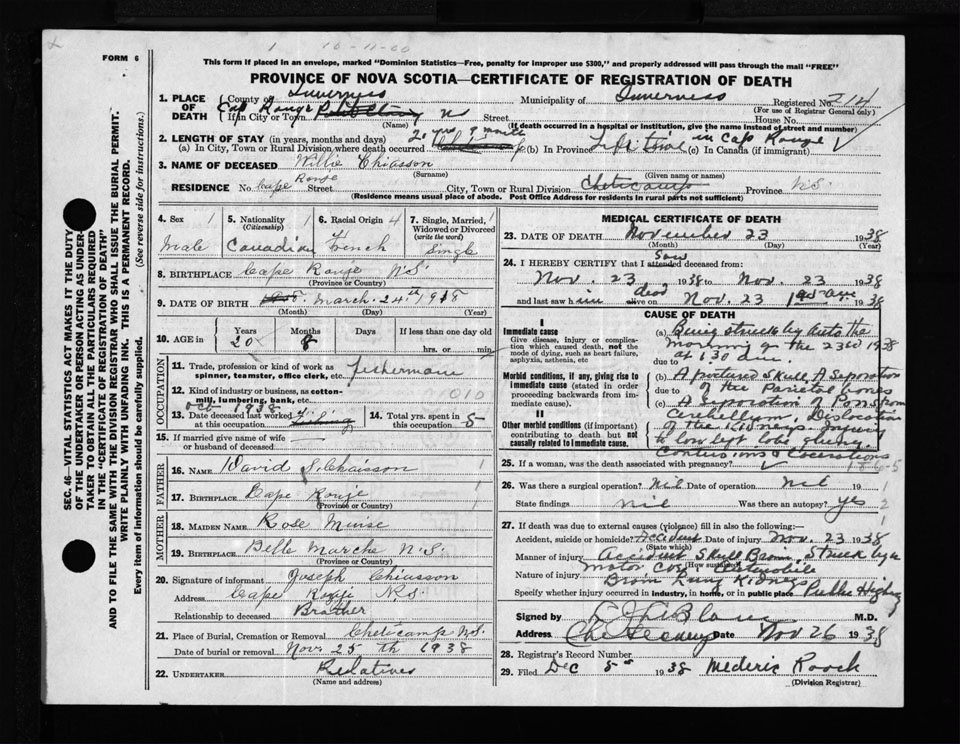 1 10-11-60
FORM 6
This form if placed in an envelope, marked "Dominion Statistics—Free, penalty for improper use $300," and properly addressed will pass through the mail "FREE"
PROVINCE OF NOVA SCOTIA—CERTIFICATE OF REGISTRATION OF DEATH
SEC. 46—VITAL STATISTICS ACT MAKES IT THE DUTY
OF THE UNDERTAKER OR PERSON ACTING AS UNDER-
TAKER TO OBTAIN ALL THE PARTICULARS REQUIRED
IN THE "CERTIFICATE OF REGISTRATION OF DEATH"
AND TO FILE THE SAME WITH THE DIVISION REGISTRAR WHO SHALL ISSUE THE BURIAL PERMIT.
WRITE PLAINLY WITH UNFADING INK. THIS IS A PERMANENT RECORD.
Every item of information should be carefully supplied. (See reverse side for instructions.)
1. PLACE OF DEATH County of Inverness Municipality of Inverness Registered No. 214
(For use of Registrar General only)
If in City or Town Cap Rouge NS Street House No.
(Name) (If death occurred in a hospital or institution, give the name instead of street and number)
2. LENGTH OF STAY (in years, months and days) 20 yrs 9 month in Cap Rouge
(a) In City, Town or Rural Division where death occurred (b) In Province Life time (c) In Canada (if immigrant)
3. NAME OF DECEASED Willie Chiasson
(Surname) (Given name or names)
RESIDENCE No. Cape Rouge Street City, Town or Rural Division Cheticamp Province N.S.
(Residence means usual place of abode. Post Office Address for residents in rural parts not sufficient)
4. Sex 1 Male
5. Nationality (Citizenship) 1 Canadian
6. Racial Origin 4 French
7. Single, Married, Widowed or Divorced (write the word) 1 Single
8. BIRTHPLACE Cape Rouge N.S.
(Province or Country)
9. DATE OF BIRTH March 24th 1918
(Month) (Day) (Year)
10. AGE in Years 20 Months 8 Days If less than one day hrs. or min.
OCCUPATION
11. Trade, profession or kind of work as spinner, teamster, office clerk, etc. fisherman
12. Kind of industry or business, as cotton-mill, lumbering, bank, etc. 010
13. Date deceased last worked at this occupation Oct 1938 Fishing
14. Total yrs. spent in this occupation 5
15. If married give name of wife or husband of deceased
FATHER
16. NAME David S. Chiasson 1
17. BIRTHPLACE Cape Rouge 1
(Province or Country)
MOTHER
18. MAIDEN NAME Rose Muise
19. BIRTHPLACE Belle Marche N.S.
(Province or Country)
20. Signature of informant Joseph Chiasson
Address Cape Rouge N.S.
Relationship to deceased Brother
21. Place of Burial, Cremation or Removal Cheticamp NS.
Date of burial or removal Nov. 25 th 1938
22. UNDERTAKER Relatives
(Name and address)
MEDICAL CERTIFICATE OF DEATH
23. DATE OF DEATH November 23 1938
(Month) (Day) (Year)
24. I HEREBY CERTIFY that I attended saw deceased from:
Nov. 23 1938 to Nov. 23 1938
and last saw him alive dead on Nov. 23 1938
CAUSE OF DEATH
I
Immediate cause
Give disease, injury or complication which caused death, not the mode of dying, such as heart failure, asphyxia, asthenia, etc
(a) Being struck by Auto the
morning of the 23rd 1938
due to at 1.30 a.m.
Morbid conditions, if any, giving rise to immediate cause (stated in order proceeding backwards from immediate cause).
(b) A fractured Skull, A Separation
due to of the Parietal bones
(c) A Separation of Pons from
II
Other morbid conditions (if important) contributing to death but not causally related to immediate cause.
Cerebellum, Dislocation
of the Kidneys. Injury
to low left lobe of lung
Contusions & Lacerations
25. If a woman, was the death associated with pregnancy?
26. Was there a surgical operation? Nil Date of operation Nil 19 1
State findings nil Was there an autopsy? yes 2
27. If death was due to external causes (violence) fill in also the following:—
Accident, suicide or homicide? Accident Date of injury Nov. 23 1938
(State which)
Manner of injury Accident Skull Brain Struck by a
(How sustained) motor Car Automobile
Nature of injury Brain Lung Kidneys
Specify whether injury occurred in industry, in home, or in public place Public Highway
Signed by M.D.
Address Date Nov 26 1938
28. Registrar's Record Number
29. Filed Dec 5th 1938 Mederic Roach
(Division Registrar)